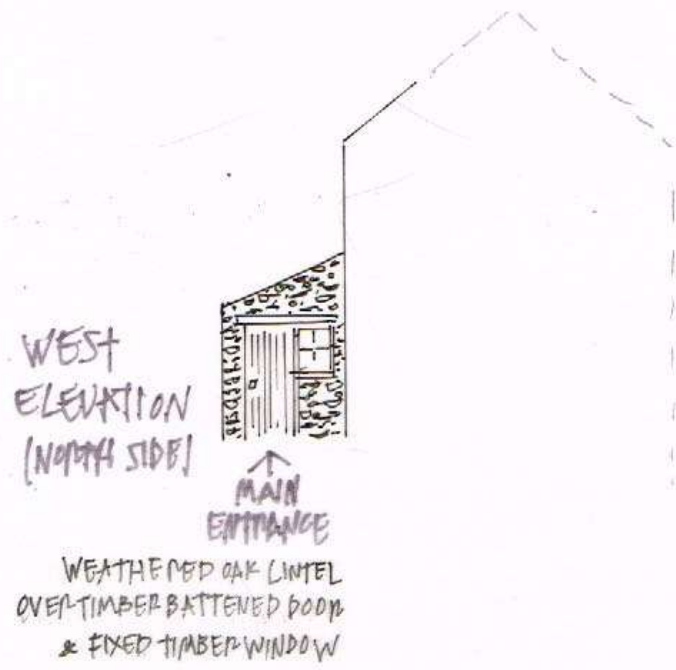 WEST
ELEVATION
(NORTH SIDE)
MAIN
ENTRANCE
WEATHERED OAK LINTEL
OVER TIMBER BATTENED DOOR
& FIXED TIMBER WINDOW